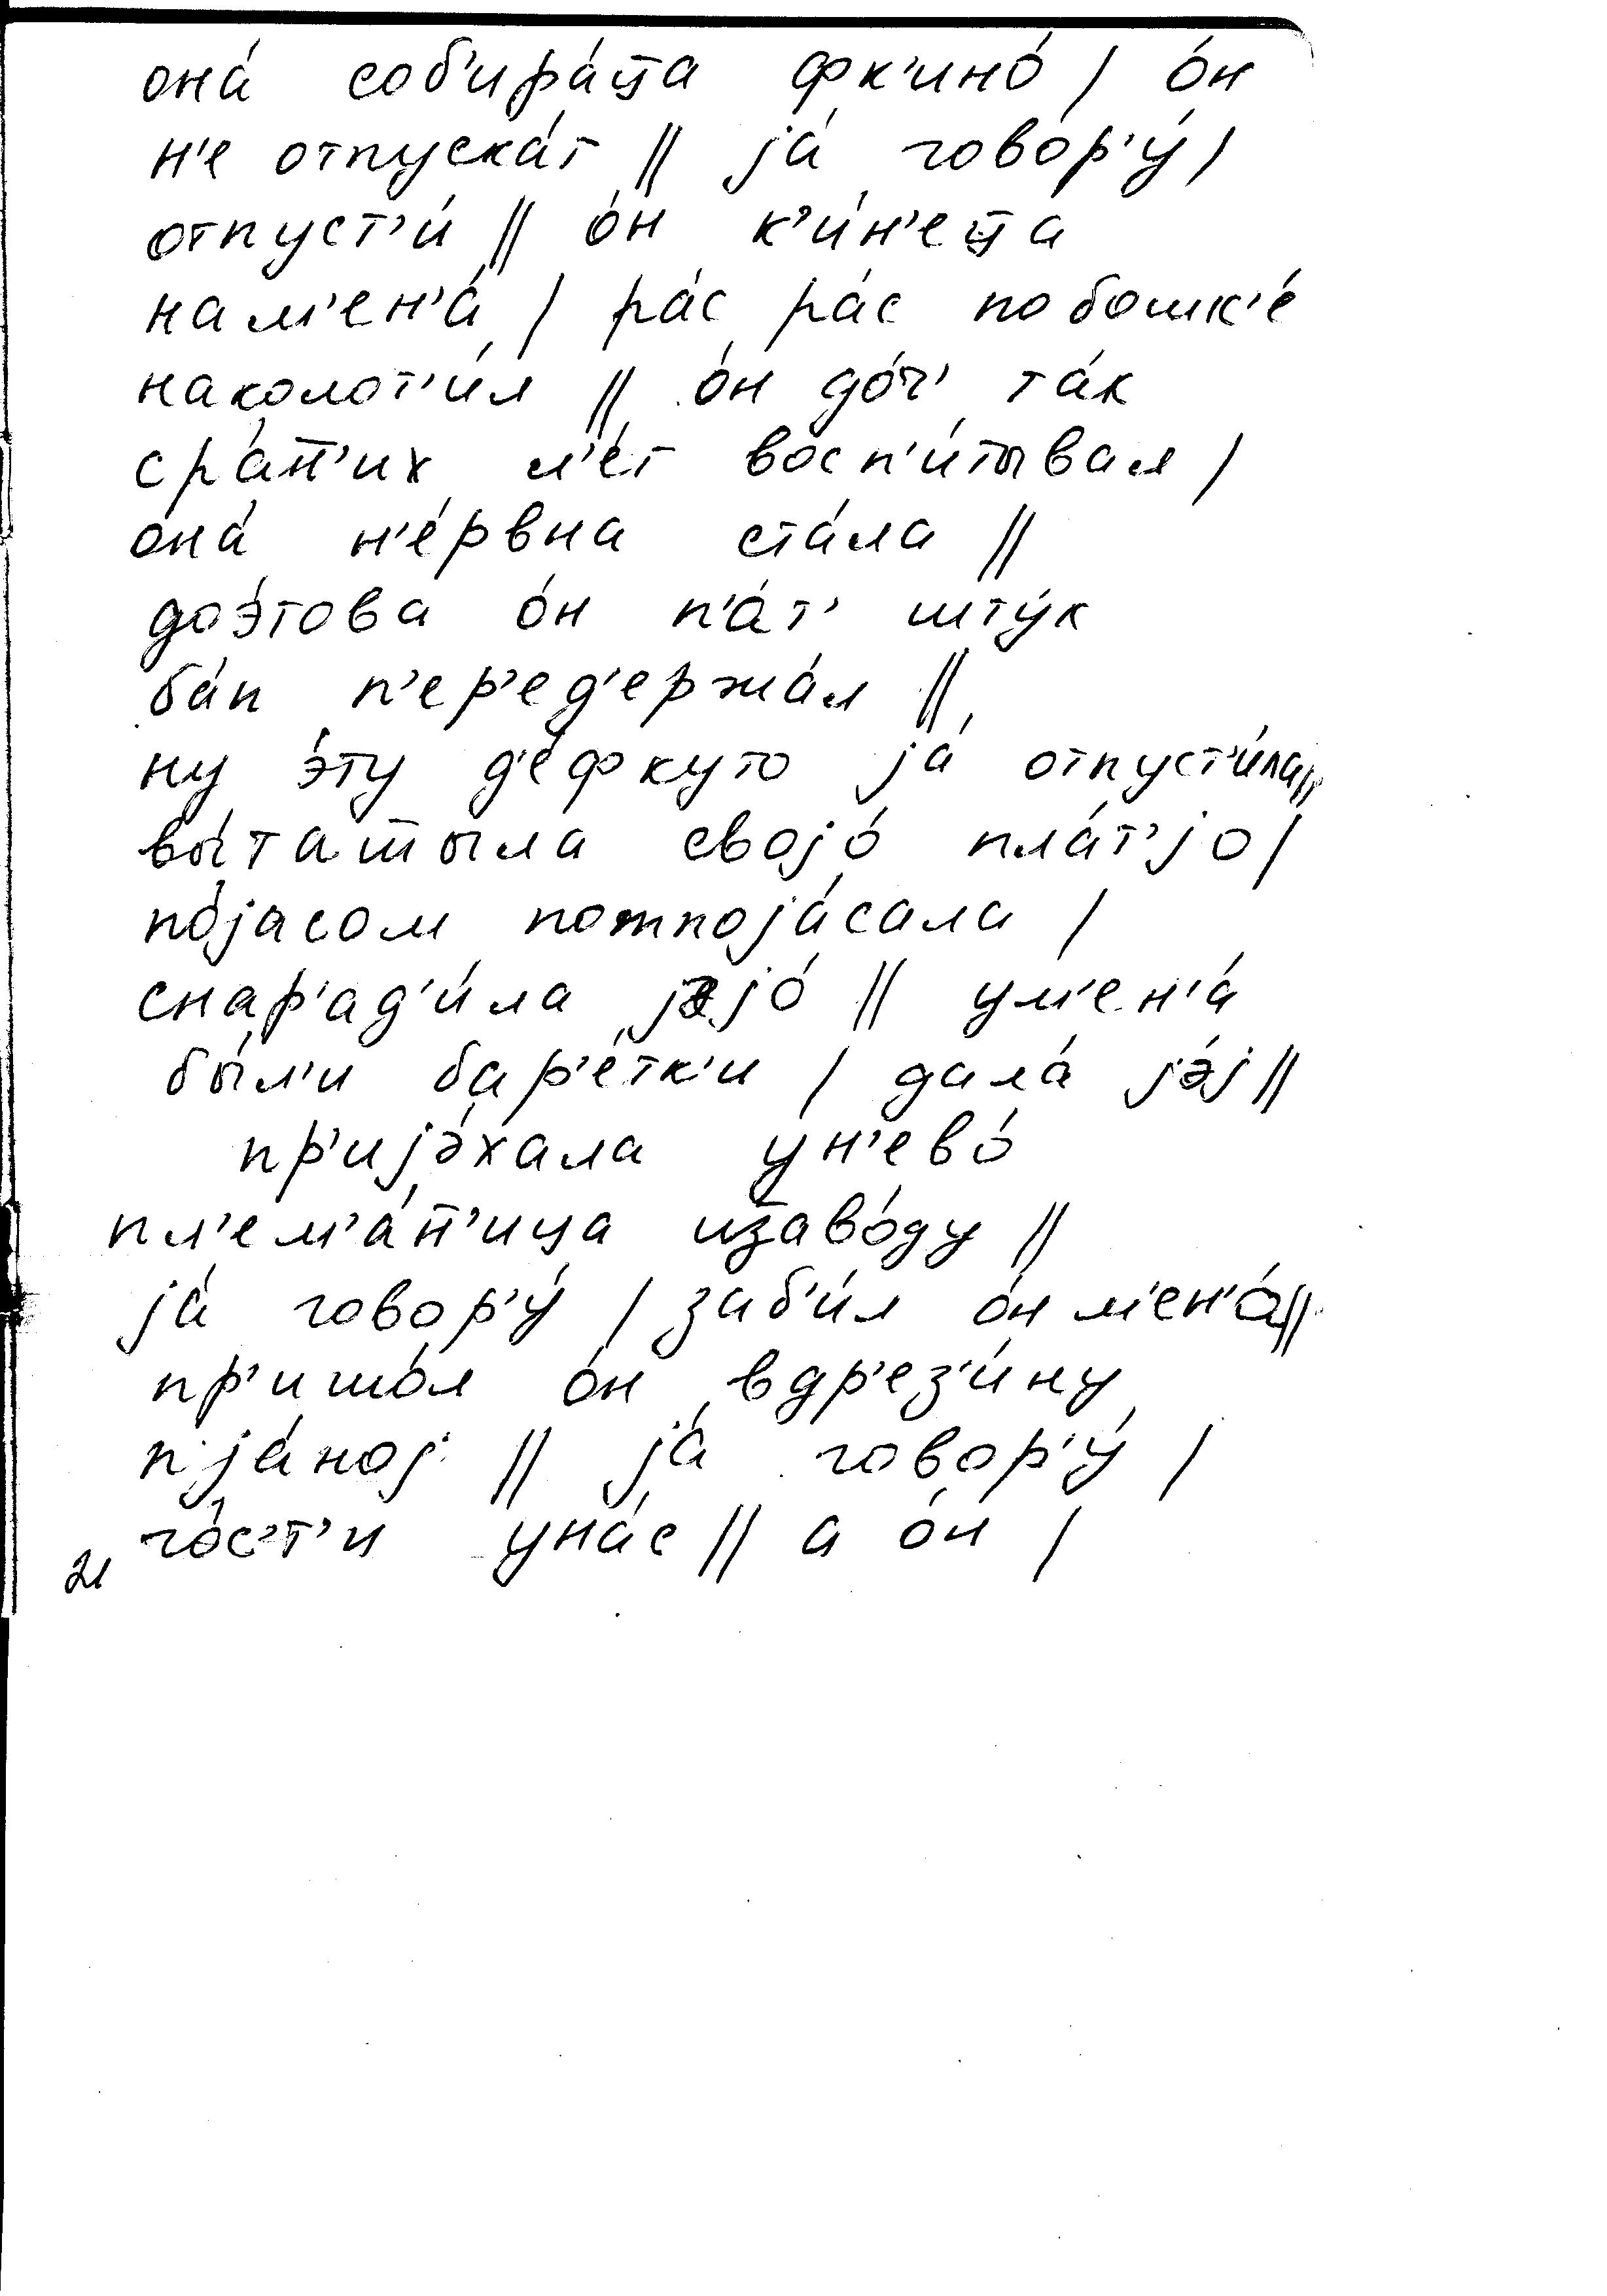 она́ соб'ира́ц̄а фк'ино́ / о́н
н'е отпуска́т // jа́ говор'у́ /
отпуст'и́ // о́н к'и́н'ец̄а
нам'ен'а́ / ра́с ра́с побошк'е́
наколот'и́л // о́н до́ч' та́к
сра́н̄'их л'е́т восп'и́тывал /
она́ н'е́рвна ста́ла //
доэ́това о́н п'а́т' шту́к
ба́п п'ер'ед'ержа́л //
ну э́ту д'е́фкуто jа́ отпуст'и́ла//
вы́таш̄ыла своjо́ пла́т'jо /
по́jасом потпоjа́сала /
снар'ад'и́ла jэjо́ // ум'ен'а́
бы́л'и бар'е́тк'и / дала́ jэ́j //
пр'иjэ́хала ун'ево́
пл'ем'а́н̄'ица из̄аво́ду //
jа́ говор'у́ / заб'и́л о́н м'ен'а́//
пр'ишо́л о́н вдр'ез'и́ну
пjа́ноj // jа́ говор'у́ /
го́с'т'и уна́с // а о́н /
21